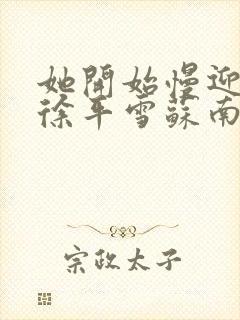 她开始慢迎
徐年雪蘇南
宗政太子